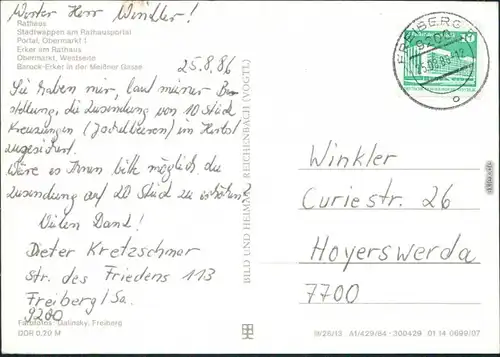 Werter Herr Windler!
Rathaus
Stadtwappen am Rathausportal
Portal, Obermarkt 1
Erker am Rathaus
Obermarkt, Westseite
Barock-Erker in der Meißner Gasse
25.8.86
Sie haben mir, laut meiner Be-
stellung, die Zusendung von 10 Stück
Kreuzungen (Jochelbeeren) im Herbst
zugesichert.
Wäre es Ihnen bitte möglich die
Zusendung auf 20 Stück zu erhöhen?
Vielen Dank!
Dieter Kretzschmar
Str. des Friedens 113
Freiberg/Sa.
9200
Farbfotos: Dalinsky, Freiberg
DDR 0,20 M
BILD UND HEIMAT REICHENBACH (VOGTL)
FREIBERG
9200
Winkler
Curiestr. 26
Hoyerswerda
7700
A1/429/84 300429 01 14 0699/07